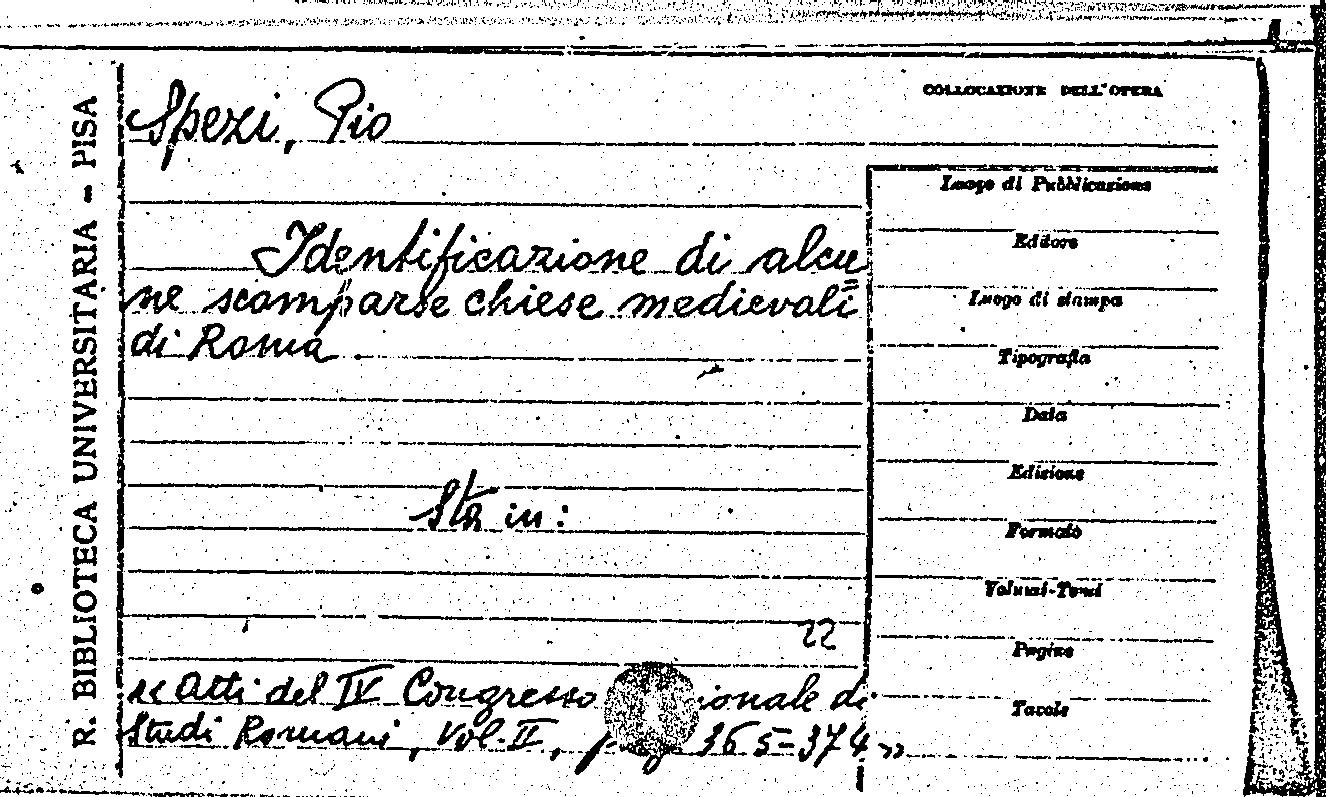 R. BIBLIOTECA UNIVERSITARIA - PISA
Spezi, Pio
Identificazione di alcu=
ne scomparse chiese medievali
di Roma.
Sta in:
22
«Atti del IV Congresso ionale di
Studi Romani, Vol. II, 365-374»
COLLOCAZIONE DELL'OPERA
Luogo di Pubblicazione
Editore
Luogo di stampa
Tipografia
Data
Edizione
Formato
Volumi-Tomi
Pagine
Tavole